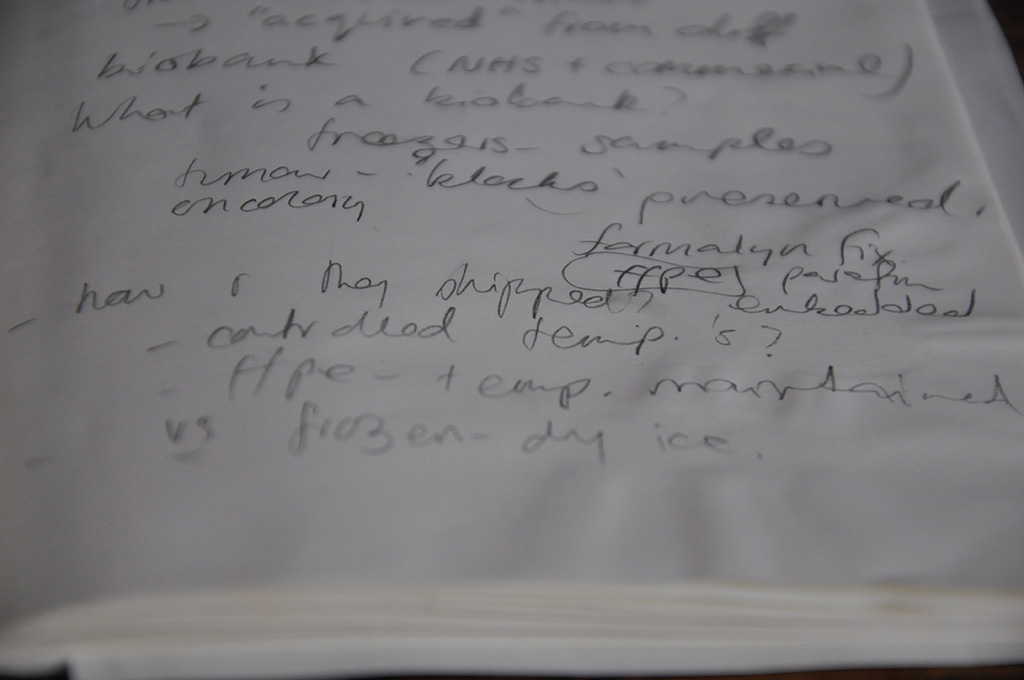 → "acquired" from diff
biobank (NHS + commercial)
What is a biobank?
freezers - samples
tumour - 'blocks' preserved.
oncology
formalyn fix
(ffpe) parafin
embedded
- how r they shipped?
- controlled temp.'s?
- ffpe - temp. maintained
- vs frozen - dry ice.